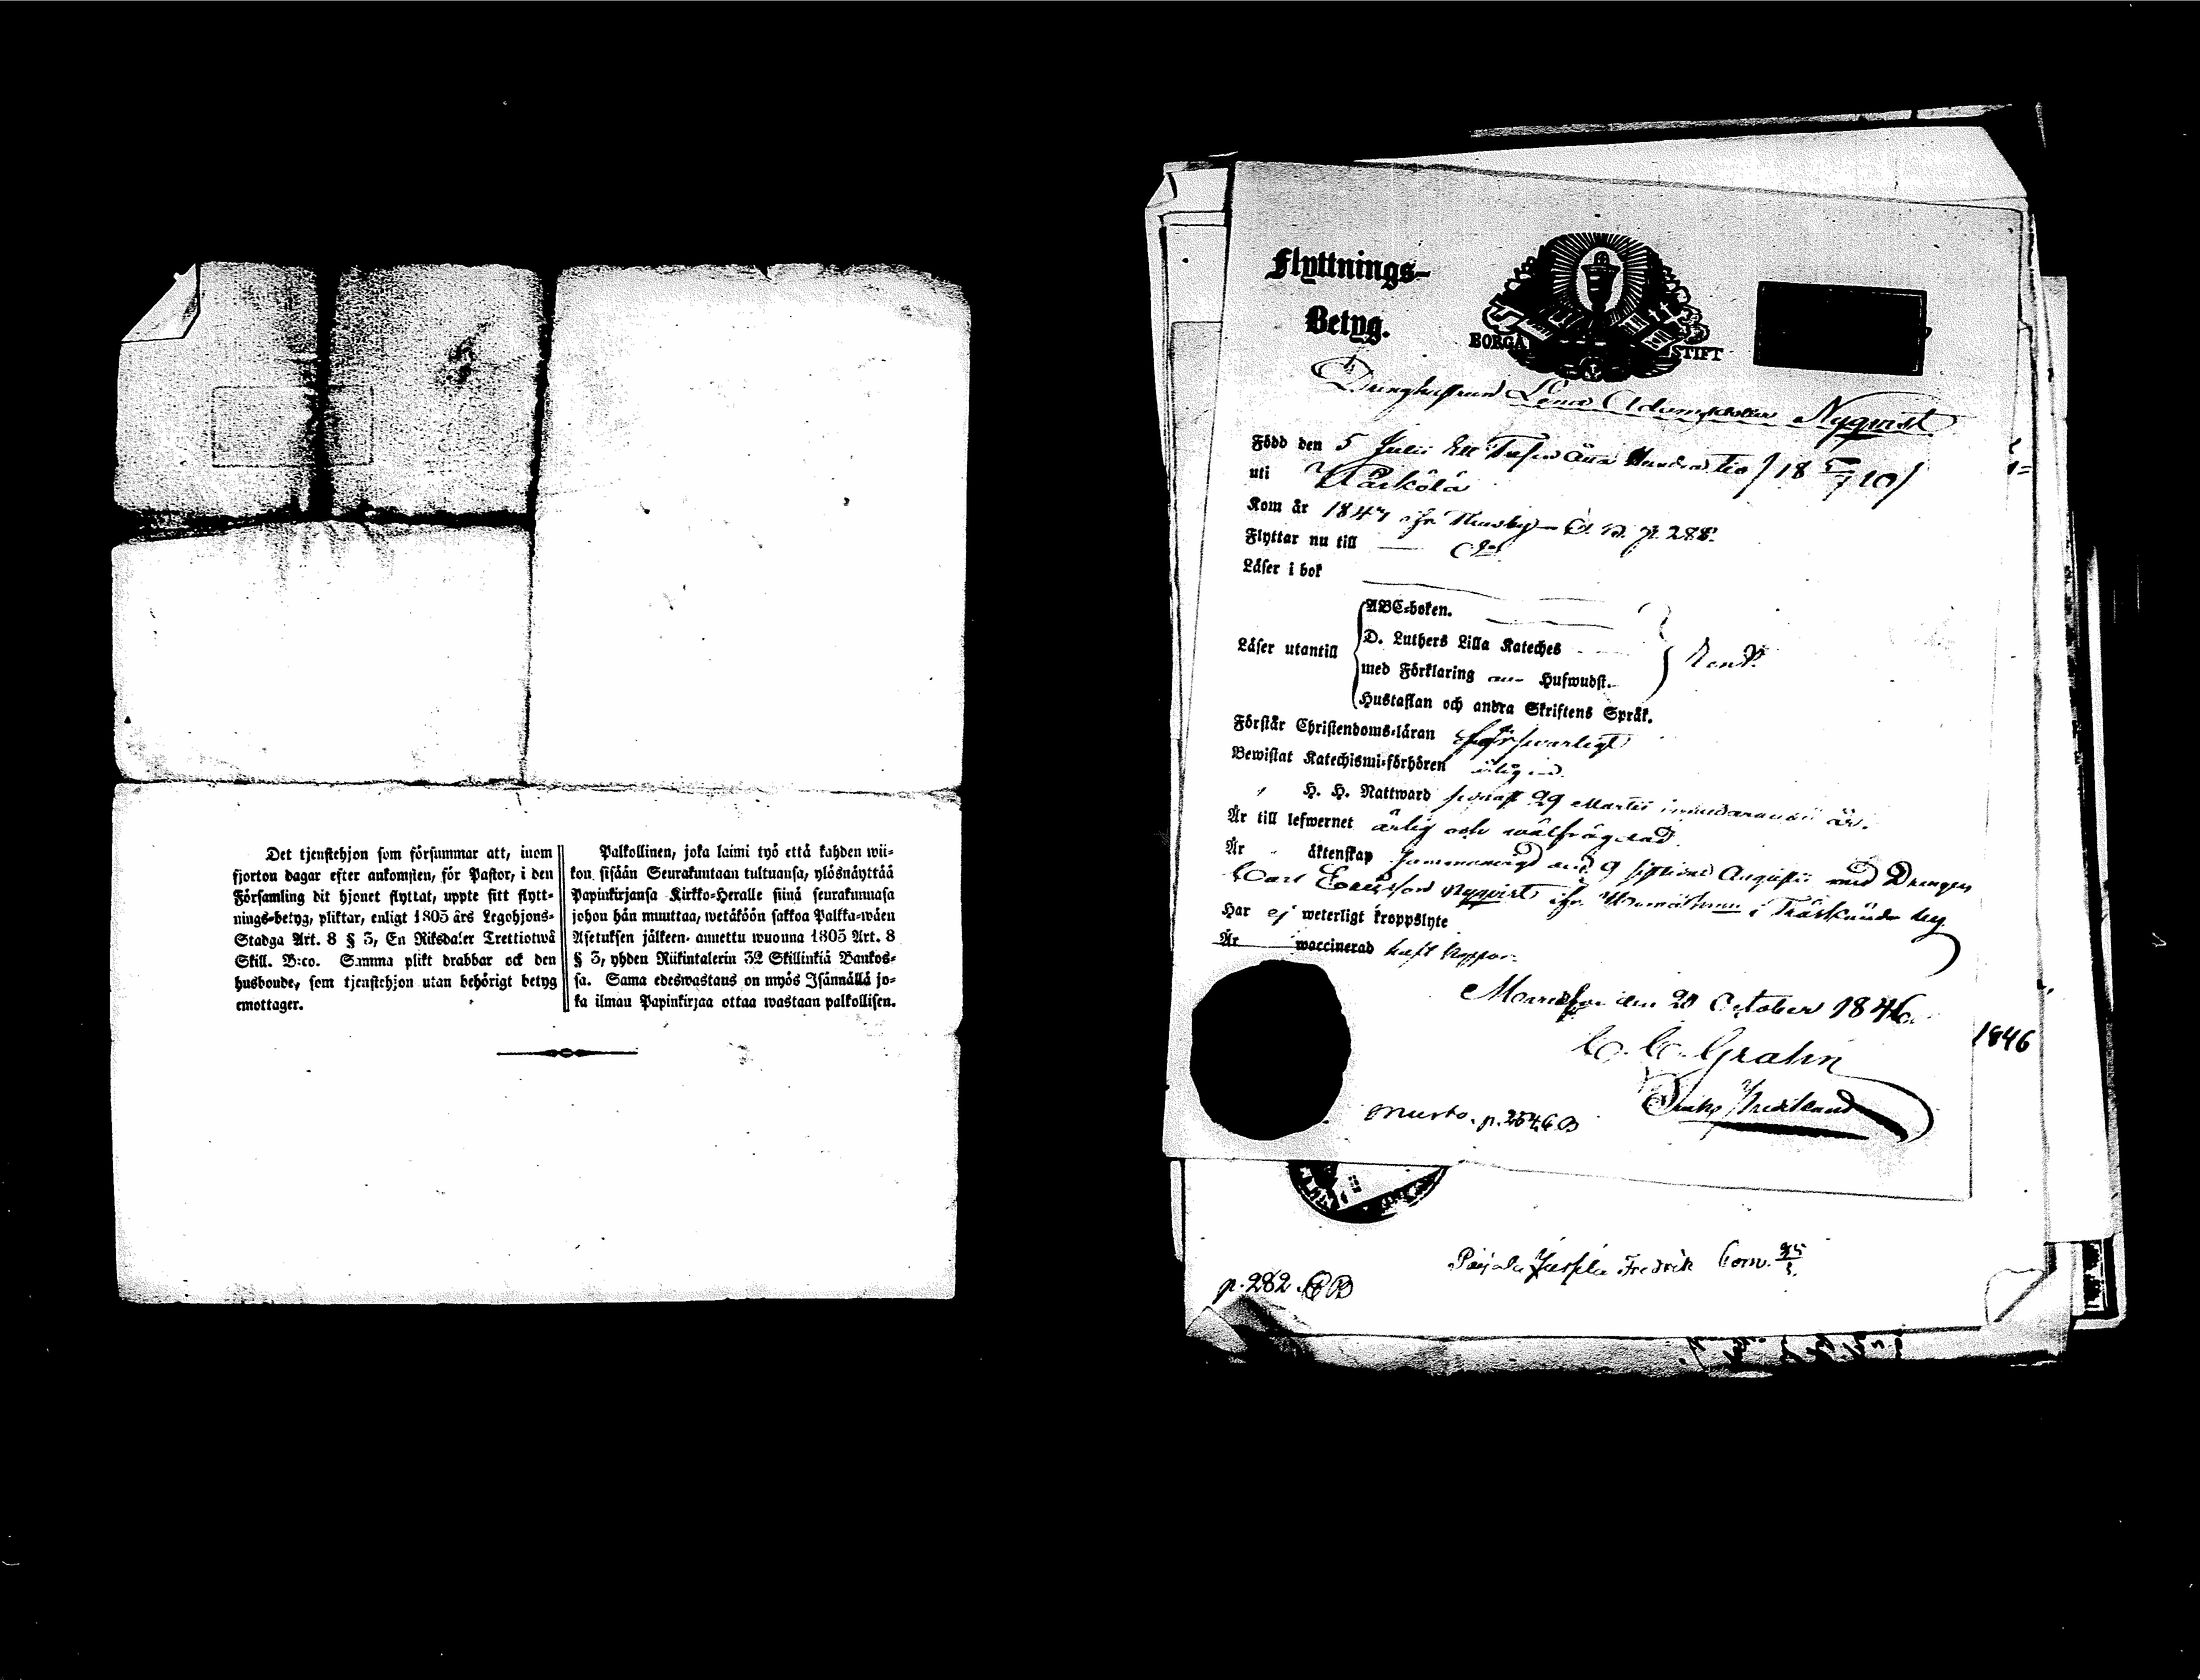 Det tjenstehjon som försummar att, inom
fjorton dagar efter ankomsten, för Pastor, i den
Församling dit hjonet flyttat, uppte sitt flytt-
nings-betyg, pliktar, enligt 1805 års Legohjons-
Stadga Art. 8 § 5, En Riksdaler Trettiotwå
Skill. B:co. Samma plikt drabbar ock den
husbonde, som tjenstehjon utan behörigt betyg
emottager.
Palkollinen, joka laimi työ että kahden wii-
kon sisään Seurakuntaan tultuansa, ylösnäyttää
Papinkirjansa Kirkko-Heralle siinä seurakunnasa
johon hän muuttaa, wetäköön sakkoa Palkka-wäen
Asetuksen jälkeen annettu wuonna 1805 Art. 8
§ 5, yhden Riikintalerin 32 Skillinkiä Bankos-
sa. Sama edeswastaus on myös Isännällä jo-
ka ilman Papinkirjaa ottaa wastaan palkollisen.
Flyttnings-
Betyg.
BORGÅ STIFT
Lena Adamsdotter Nyqvist
Född den 5 Julii Ett Tusen Åtta Hundra tio /18 5/7 10/
uti Kärkölä
Kom år 1847 fr. p. 288.
Flyttar nu till
Läser i bok
Läser utantill
ABC-boken.
D. Luthers Lilla Kateches
med Förklaring Hufwudst.
Hustaflan och andra Skriftens Språk.
Förstår Christendoms-läran försvarligt
Bewistat Katechismi-förhören
H. H. Nattward senast 29 Martii innevarande år.
Är till lefwernet ärlig och wälfrägdad
Är äktenskap sammanvigd den 9 sistledne Augusti med Drängen
Carl Ericsson Nyqvist ifr. i Träskända by
Har ej weterligt kroppslyte
Är waccinerad haft koppor.
den 20 October 1846.
C. C. Grahn
1846
p. 254
p. 282 CB
Fredrik